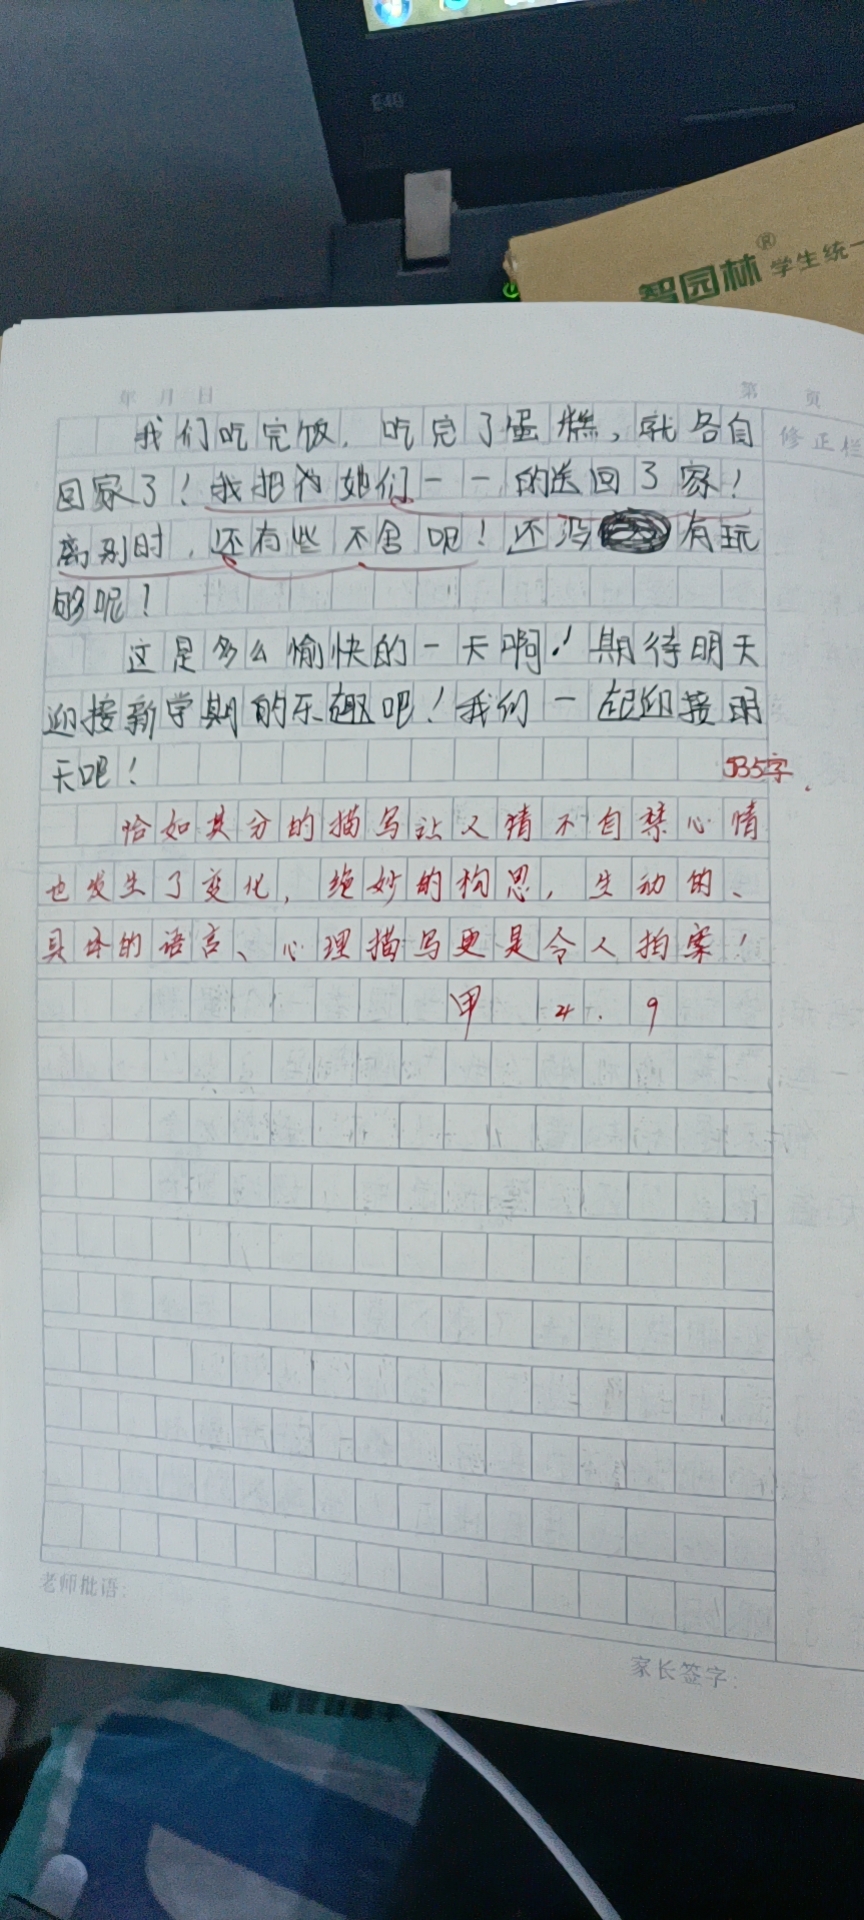 E40
智园林® 学生统一
年 月 日
第 页
修正栏
我们吃完饭，吃完了蛋糕，就各自
回家了！我把她们一一的送回了家！
离别时，还有些不舍呢！还没有玩
够呢！
这是多么愉快的一天啊！期待明天
迎接新学期的乐趣吧！我们一起迎接明
天吧！
535字
恰如其分的描写让人猜不自禁心情
也发生了变化，绝妙的构思，生动的、
具体的语言、心理描写更是令人拍案！
甲 4.9
老师批语：
家长签字：